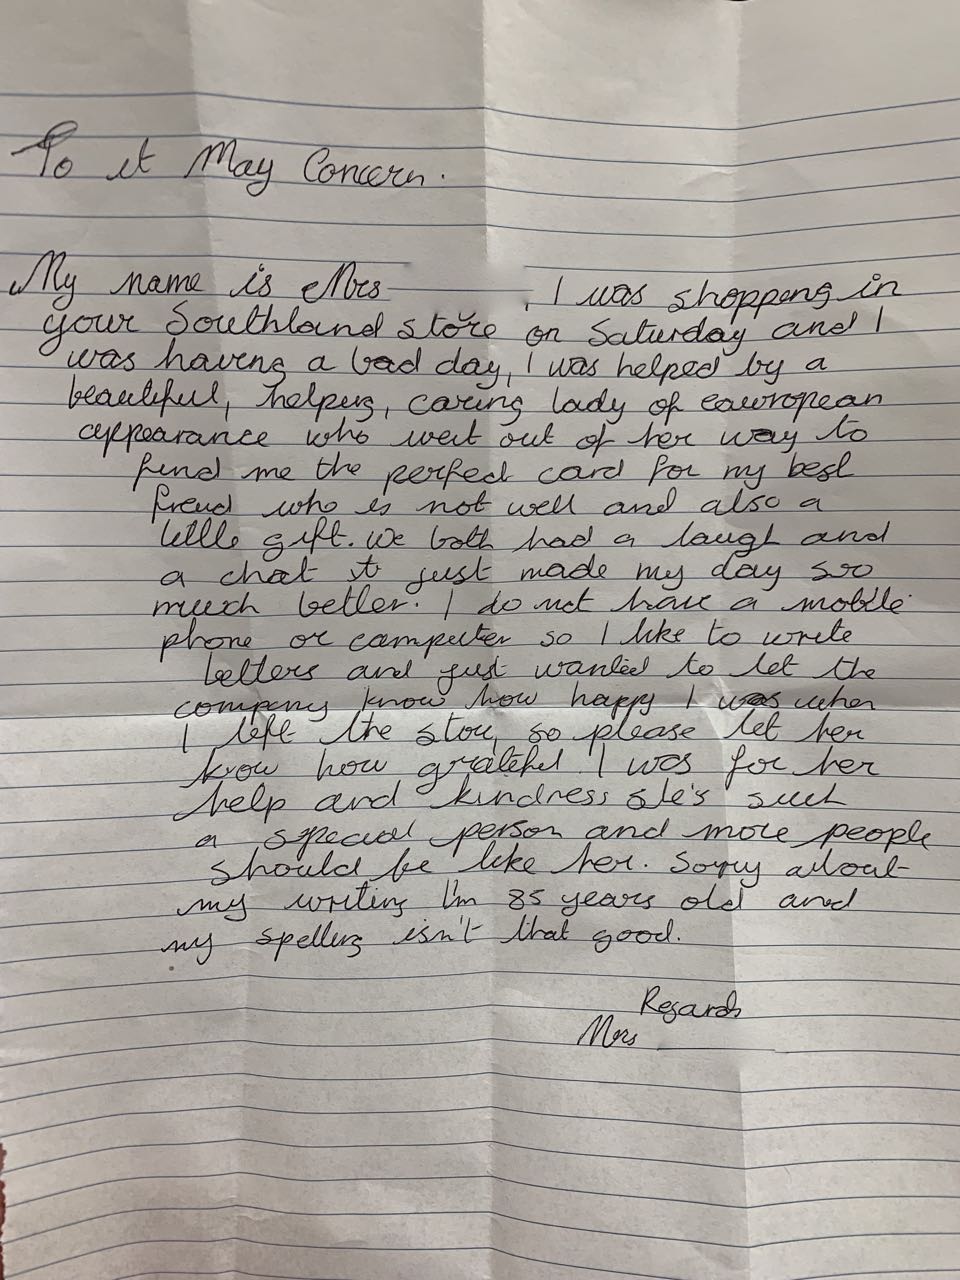 To it May Concern.
My name is Mrs , I was shopping in
your Southland store on Saturday and I
was having a bad day, I was helped by a
beautiful, helping, caring lady of eauropean
appearance who went out of her way to
find me the perfect card for my best
freud who is not well and also a
little gift. we both had a laugh and
a chat it just made my day soo
much better. I do not have a mobile
phone or camputer so I like to write
letters and just wanted to let the
company know how happy I was when
I left the store, so please let her
know how grateful I was for her
help and kindness she's such
a special person and more people
should be like her. Sorry about
my writing I'm 85 years old and
my spelling isn't that good.
Regards
Mrs